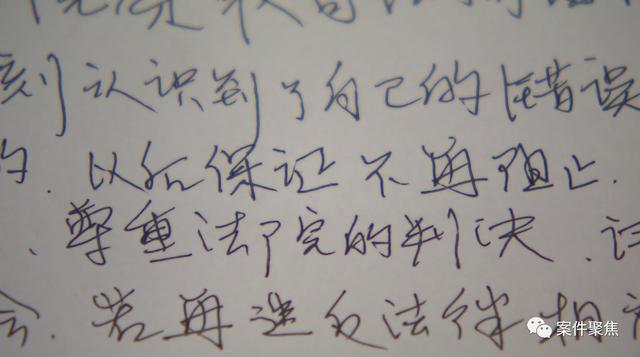 刻认识到了自己的错误
的.以后保证不再阻止.
、尊重法院的判决、
会.若再违反法律相
案件聚焦